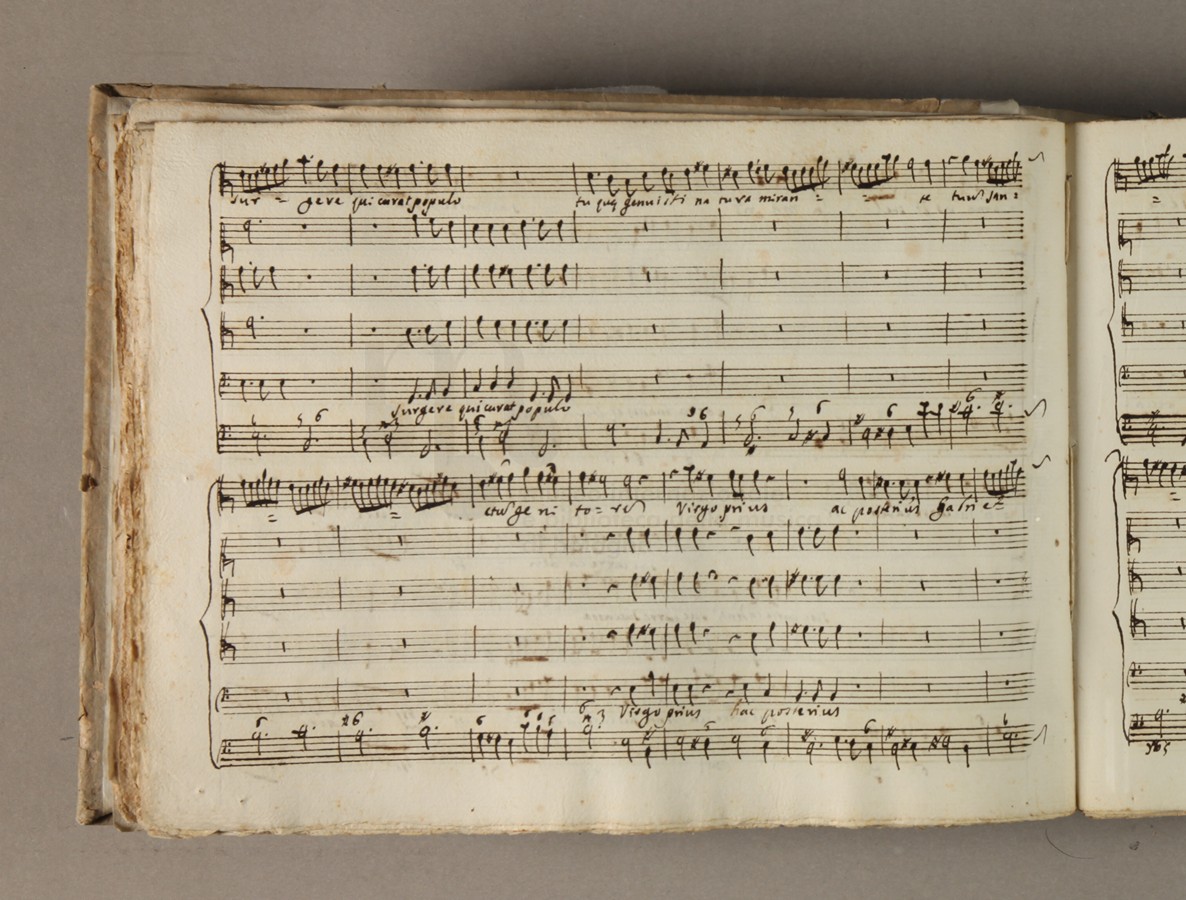 sur = gere qui curat populo tu quę genuisti na tura miran = = te tuũ San =
Surgere qui curat populo
= = ctũ ge ni to = rẽ Virgo prius ac posterius Gabri e =
Virgo prius hac posterius